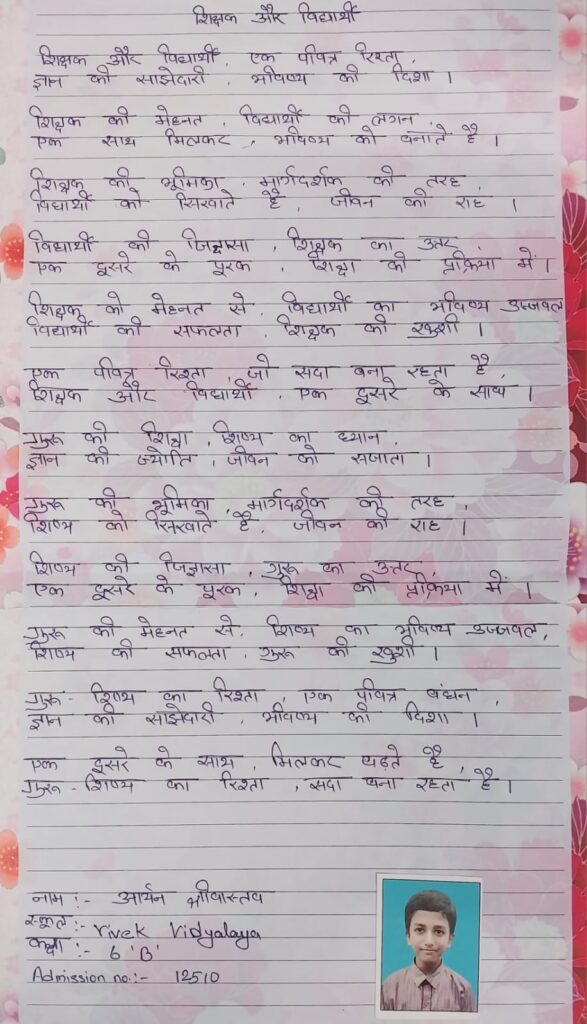 शिक्षक और विद्यार्थी
शिक्षक और विद्यार्थी, एक पवित्र रिश्ता,
ज्ञान की साझेदारी, भविष्य की दिशा ।
शिक्षक की मेहनत, विद्यार्थी की लगन,
एक साथ मिलकर, भविष्य को बनाते है ।
शिक्षक की भूमिका, मार्गदर्शक की तरह,
विद्यार्थी को सिखाते है, जीवन की राह ।
विद्यार्थी की जिज्ञासा, शिक्षक का उत्तर,
एक दूसरे के पूरक, शिक्षा की प्रक्रिया में ।
शिक्षक की मेहनत से, विद्यार्थी का भविष्य उज्जवल
विद्यार्थी की सफलता, शिक्षक की खुशी ।
एक पवित्र रिश्ता, जो सदा बना रहता है,
शिक्षक और विद्यार्थी, एक दूसरे के साथ ।
गुरू की शिक्षा, शिष्य का ध्यान,
ज्ञान की ज्योति, जीवन को सजाता ।
गुरू की भूमिका, मार्गदर्शक की तरह,
शिष्य को सिखाते है, जीवन की राह ।
शिष्य की जिज्ञासा, गुरू का उत्तर,
एक दूसरे के पूरक, शिक्षा की प्रक्रिया में ।
गुरू की मेहनत से, शिष्य का भविष्य उज्जवल,
शिष्य की सफलता, गुरू की खुशी ।
गुरू - शिष्य का रिश्ता, एक पवित्र बंधन,
ज्ञान की साझेदारी, भविष्य की दिशा ।
एक दूसरे के साथ, मिलकर बढ़ते है,
गुरू - शिष्य का रिश्ता, सदा बना रहता है ।
नाम :- आर्यन श्रीवास्तव
स्कूल :- Vivek Vidyalaya
कक्षा :- 6 'B'
Admission no.:- 12510